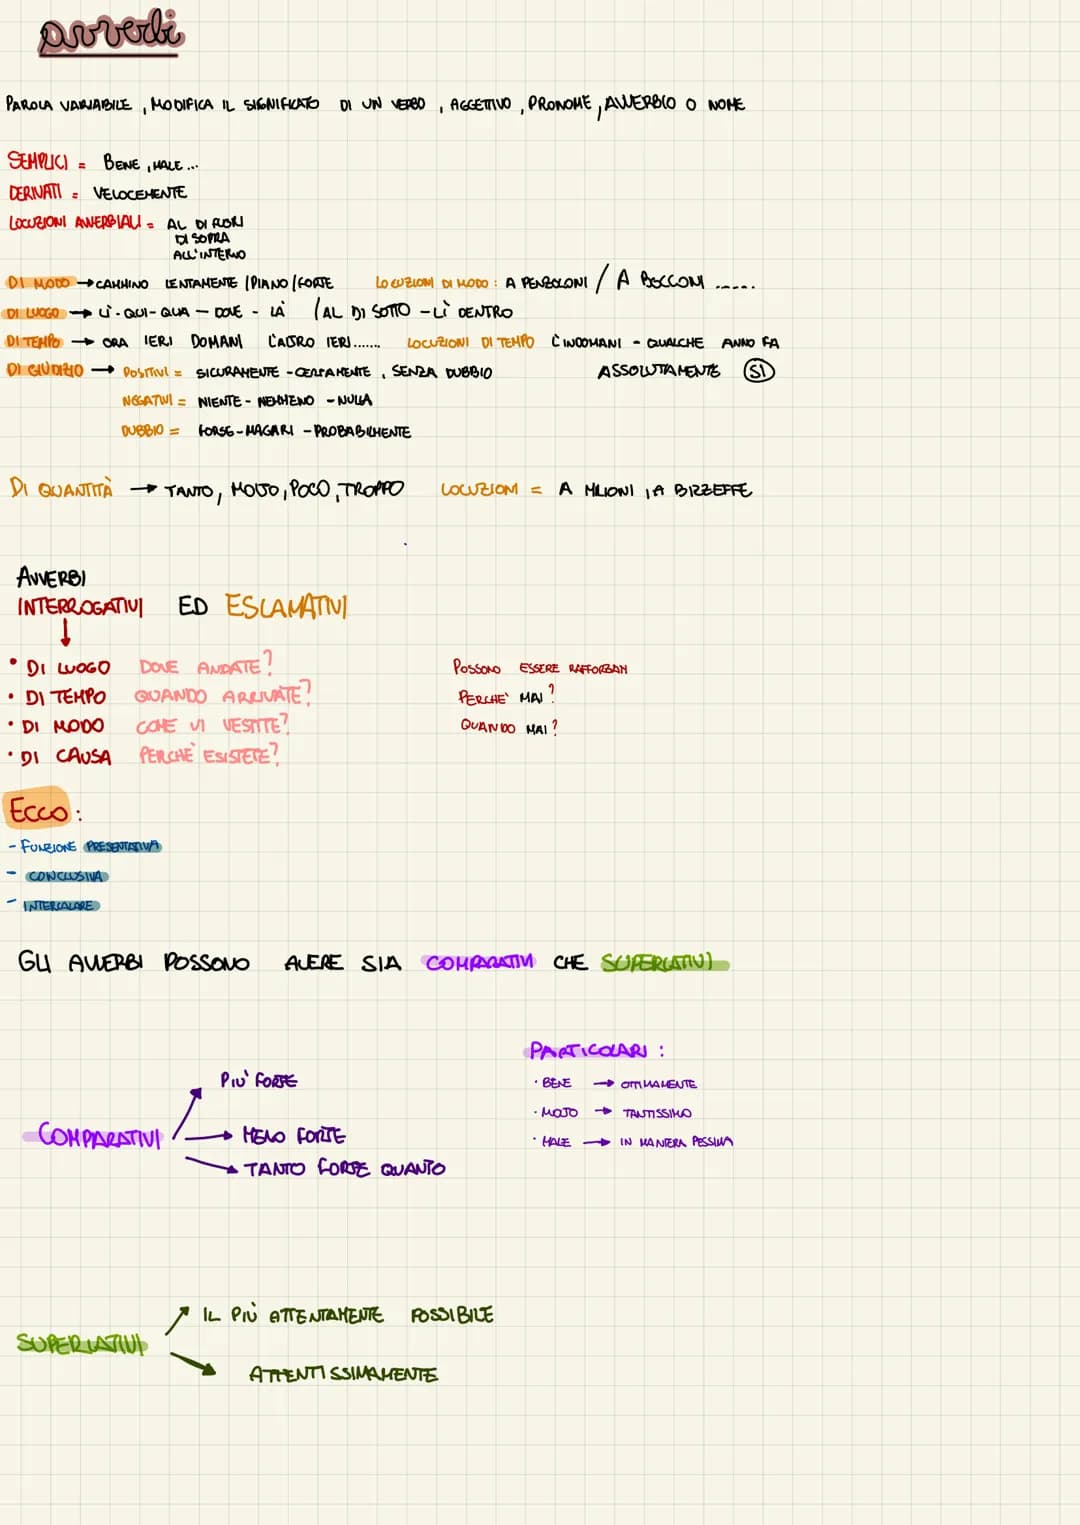 avverbi
PAROLA VARIABILE , MODIFICA IL SIGNIFICATO DI UN VERBO , AGGETTIVO , PRONOME , AVVERBIO O NOME
SEMPLICI = BENE , MALE ...
DERIVATI = VELOCEMENTE
LOCUZIONI AVVERBIALI = AL DI FUORI
DI SOPRA
ALL'INTERNO
DI MODO → CAMMINO LENTAMENTE / PIANO / FORTE LOCUZIONI DI MODO : A PENZOLONI / A BOCCONI ......
DI LUOGO → LÌ - QUI - QUA - DOVE - LÀ / AL DI SOTTO - LÌ DENTRO
DI TEMPO → ORA IERI DOMANI L'ALTRO IERI ....... LOCUZIONI DI TEMPO L'INDOMANI - QUALCHE ANNO FA
DI GIUDIZIO → POSITIVI = SICURAMENTE - CERTAMENTE , SENZA DUBBIO ASSOLUTAMENTE SI
NEGATIVI = NIENTE - NEMMENO - NULLA
DUBBIO = FORSE - MAGARI - PROBABILMENTE
DI QUANTITÀ → TANTO , MOLTO , POCO , TROPPO LOCUZIONI = A MILIONI , A BIZZEFFE
AVVERBI
INTERROGATIVI ED ESCLAMATIVI
• DI LUOGO DOVE ANDATE ? POSSONO ESSERE RAFFORZATI
• DI TEMPO QUANDO ARRIVATE ? PERCHE' MAI ?
• DI MODO COME VI VESTITE ? QUANDO MAI ?
• DI CAUSA PERCHÈ ESISTETE ?
ECCO :
- FUNZIONE PRESENTATIVA
- CONCLUSIVA
- INTERCALARE
GLI AVVERBI POSSONO AVERE SIA COMPARATIVI CHE SUPERLATIVI
PARTICOLARI :
PIU' FORTE
• BENE → OTTIMAMENTE
• MOLTO → TANTISSIMO
COMPARATIVI → MENO FORTE
• MALE → IN MANIERA PESSIMA
→ TANTO FORTE QUANTO
IL PIÙ ATTENTAMENTE POSSIBILE
SUPERLATIVI
ATTENTISSIMAMENTE